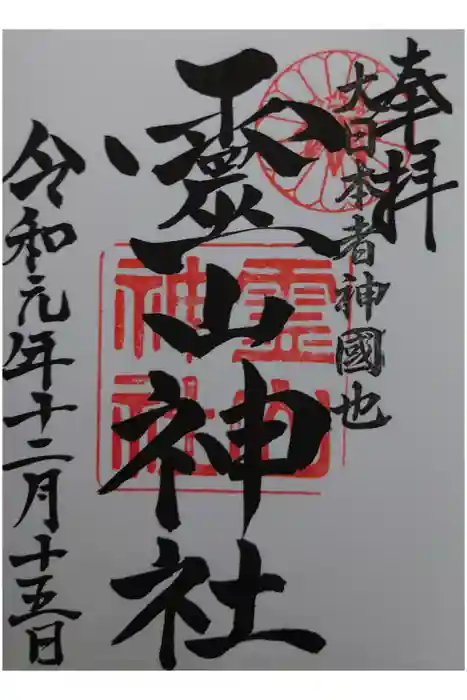 奉拝
大日本者神國也
靈山神社
霊山
神社
令和元年十二月十五日